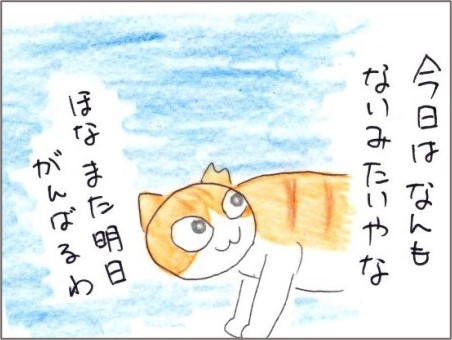 今日はなんも
ないみたいやな
ほなまた明日
がんばるわ